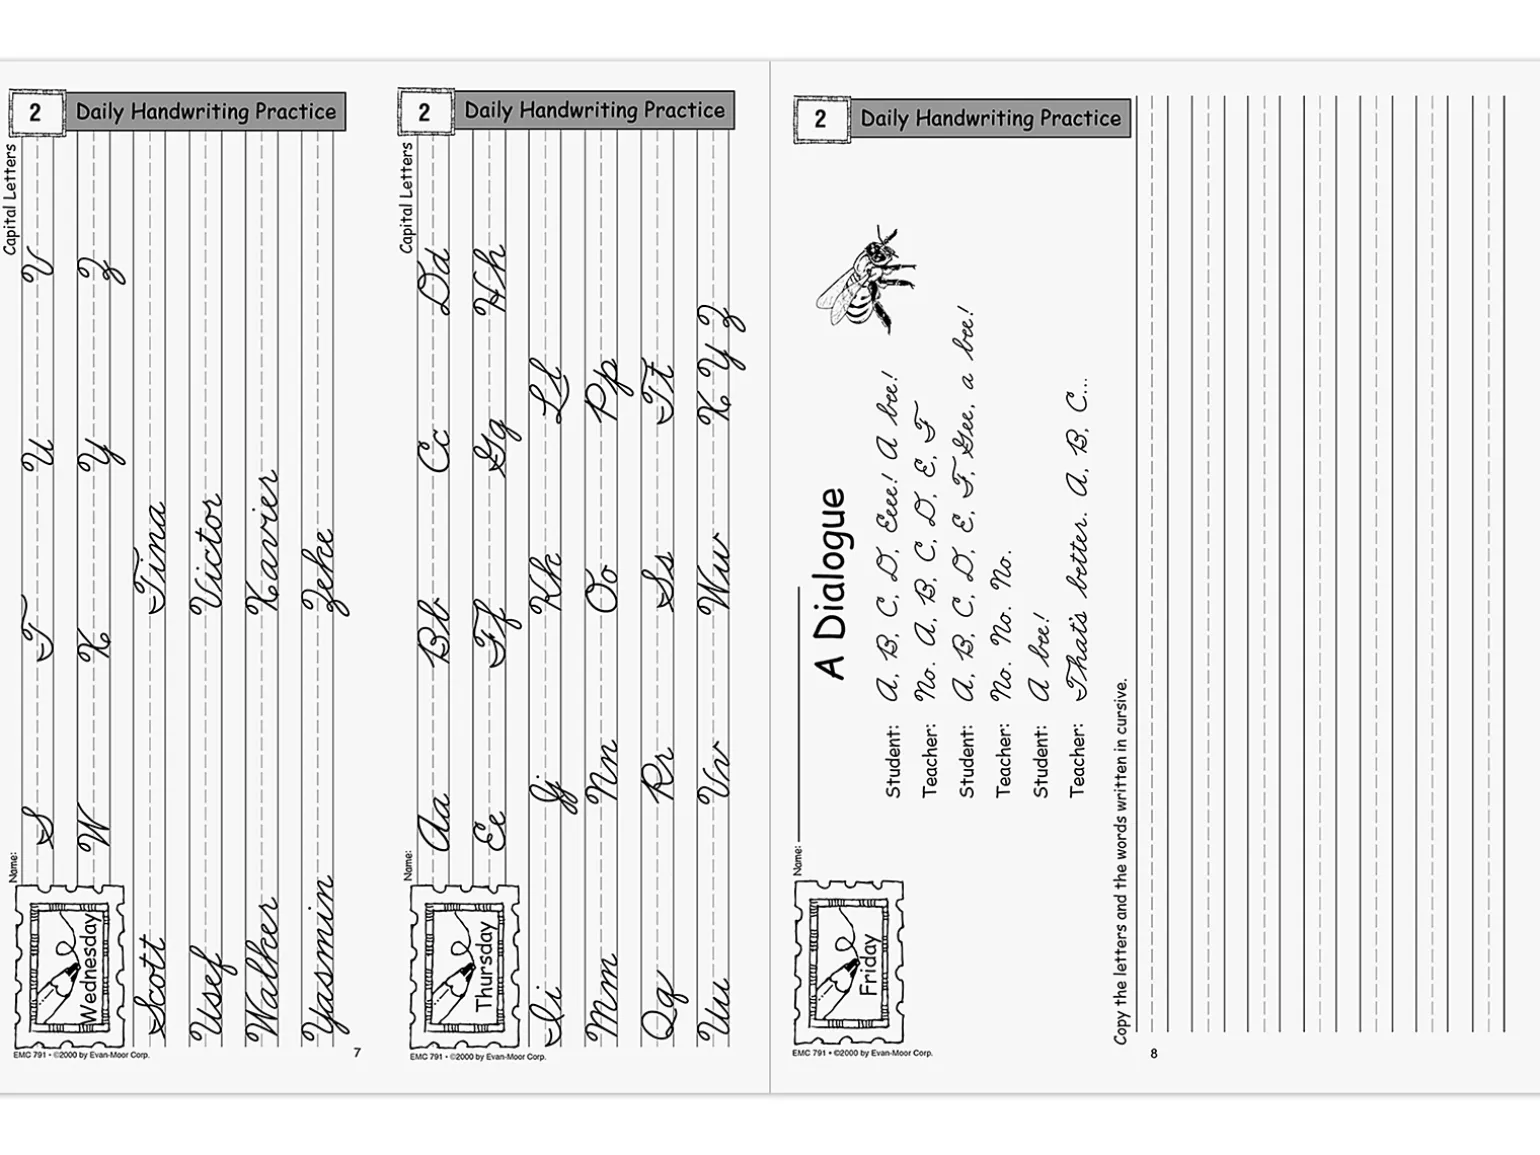 2 Daily Handwriting Practice
Name:
Capital Letters
Wednesday
S T U V
W X Y Z
Scott Tina
Usef Victor
Walker Xavier
Yasmin Zeke
EMC 791 • ©2000 by Evan-Moor Corp.
7
2 Daily Handwriting Practice
Name:
Capital Letters
Thursday
Aa Bb Cc Dd
Ee Ff Gg Hh
Ii Jj Kk Ll
Mm Nn Oo Pp
Qq Rr Ss Tt
Uu Vv Ww X Y Z
EMC 791 • ©2000 by Evan-Moor Corp.
2 Daily Handwriting Practice
Name:
Friday
A Dialogue
Student: A, B, C, D, Eeee! A bee!
Teacher: No. A, B, C, D, E, F
Student: A, B, C, D, E, F, Gee, a bee!
Teacher: No. No. No.
Student: A bee!
Teacher: That's better. A, B, C...
Copy the letters and the words written in cursive.
EMC 791 • ©2000 by Evan-Moor Corp.
8